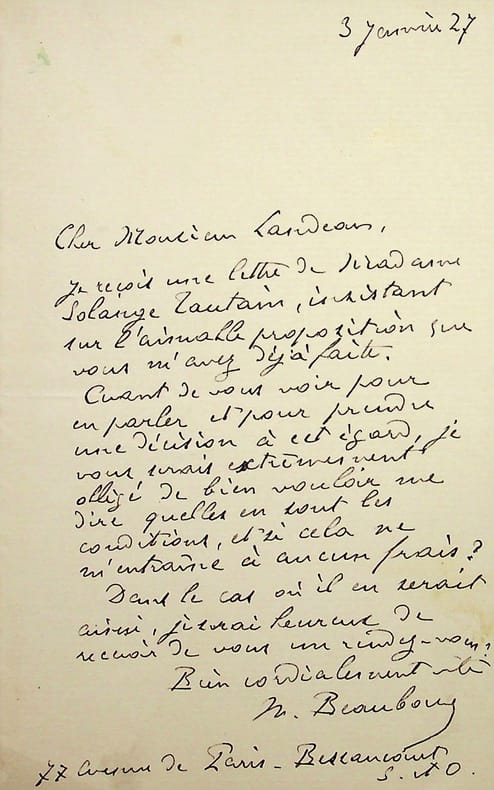 3 Janvier 27
Cher Monsieur Landeau,
je reçois une lettre de Madame
Solange Tautain, insistant
sur l'aimable proposition que
vous m'avez déjà faite.
Avant de vous voir pour
en parler et pour prendre
une décision à cet égard, je
vous serais extrêmement
obligé de bien vouloir me
dire quelles en sont les
conditions, et si cela ne
m'entraîne à aucun frais ?
Dans le cas où il en serait
ainsi, je serai heureux de
recevoir de vous un rendez-vous.
Bien cordialement
M. Beaubourg
77 avenue de Paris - Bessancourt
S. et O.